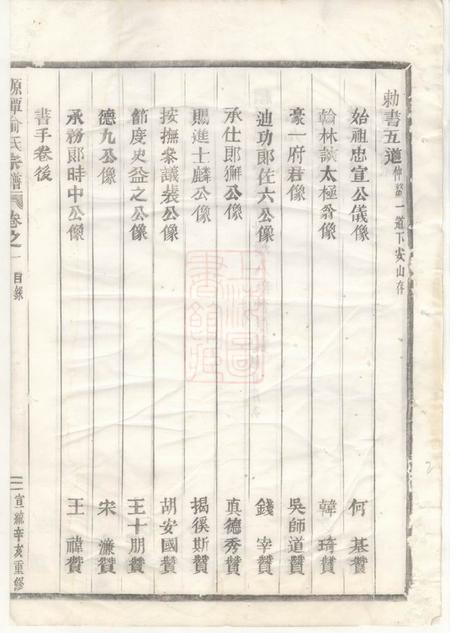 勅書五道 一道下安山存
始祖忠宣公儀像 何基贊
翰林 太極 像 韓琦贊
豪一府君像 吳師道贊
迪功郎佐六公像 錢宰贊
承仕郎獬公像 真德秀贊
賜進士麟公像 揭徯斯贊
按撫叅議裝公像 胡安國贊
節度史益之公像 王十朋贊
德九公像 宋濂贊
承務郎時中公像 王禕贊
書手卷後
源潭俞氏宗譜 卷之一 目錄 二 宣統辛亥重修